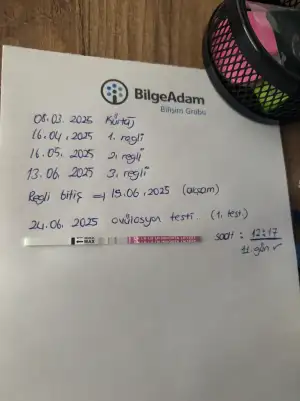 BilgeAdam
Bilişim Grubu
08.03.2025 Kürtaj
16.04.2025 1. regli
16.05.2025 2. regli
13.06 2025 3. regli
Regli bitiş => 19.06.2025 (akşam)
24.06.2025 ovülasyon testi. (1. test)
MAX
saat : 12:17
11. gün